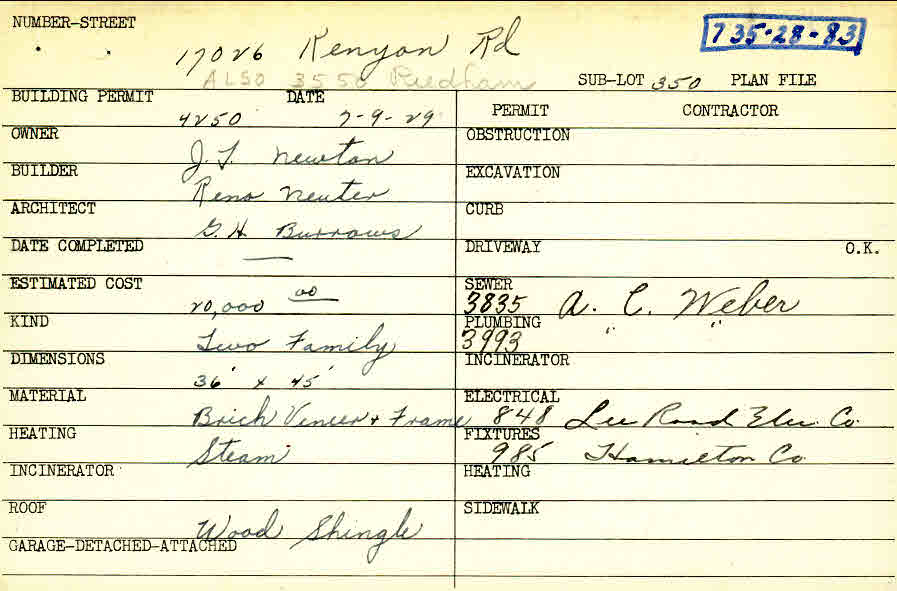 NUMBER-STREET
17026 Kenyon Rd
735-28-83
ALSO 3550 Riedham
SUB-LOT 350 PLAN FILE
BUILDING PERMIT DATE
4250 7-9-29
PERMIT CONTRACTOR
OWNER
J. T. Newton
OBSTRUCTION
BUILDER
Reno Neuter
EXCAVATION
ARCHITECT
G. H. Burrows
CURB
DATE COMPLETED
—
DRIVEWAY O.K.
ESTIMATED COST
20,000 00
SEWER
3835 A. C. Weber
KIND
Two Family
PLUMBING
3993 " "
DIMENSIONS
36' x 45'
INCINERATOR
MATERIAL
Brick Veneer + Frame
ELECTRICAL
848 Lee Road Elec. Co.
HEATING
Steam
FIXTURES
985 Hamilton Co
INCINERATOR
HEATING
ROOF
Wood Shingle
SIDEWALK
GARAGE-DETACHED-ATTACHED